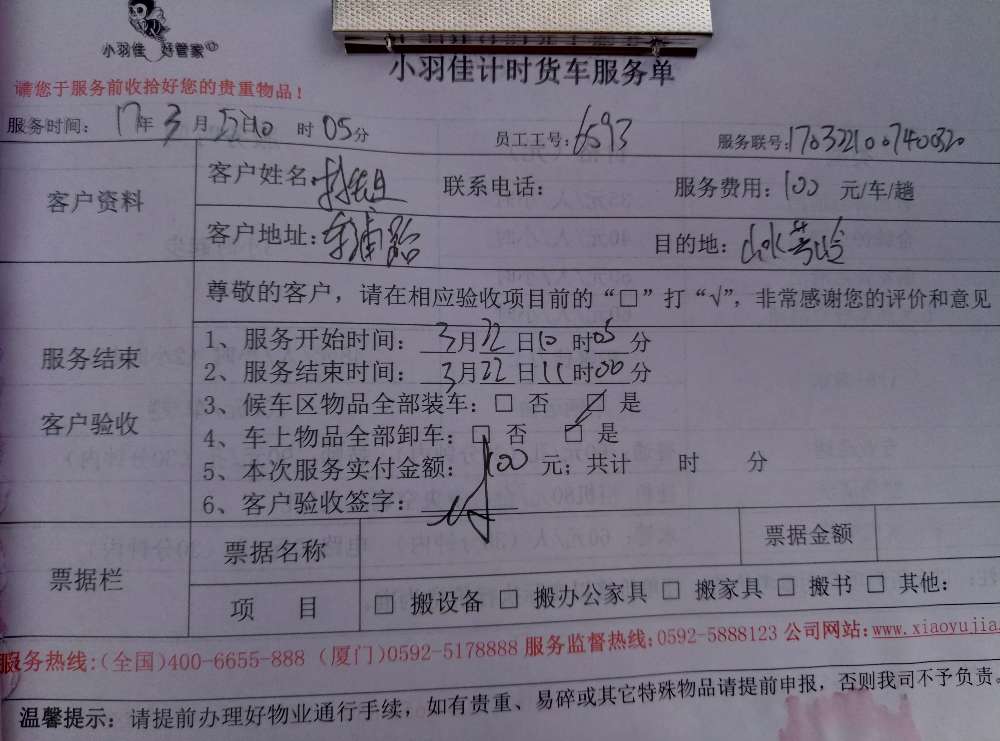 小羽佳 好管家
小羽佳计时货车服务单
请您于服务前收拾好您的贵重物品！
服务时间： 17年3月22日10时05分 员工工号：6593 服务联号：1703221007400320
客户资料
客户姓名 联系电话： 服务费用：100元/车/趟
客户地址： 目的地：
尊敬的客户，请在相应验收项目前的“□”打“√”，非常感谢您的评价和意见
服务结束
客户验收
1、服务开始时间：3月22日10时05分
2、服务结束时间：3月22日11时00分
3、候车区物品全部装车：□ 否 ☑ 是
4、车上物品全部卸车：□ 否 ☑ 是
5、本次服务实付金额：100元；共计 时 分
6、客户验收签字：
票据栏
票据名称 票据金额
项 目 □ 搬设备 □ 搬办公家具 □ 搬家具 □ 搬书 □ 其他：
服务热线：(全国)400-6655-888 (厦门)0592-5178888 服务监督热线：0592-5888123 公司网站：www.xiaoyujia.
温馨提示：请提前办理好物业通行手续，如有贵重、易碎或其它特殊物品请提前申报，否则我司不予负责。